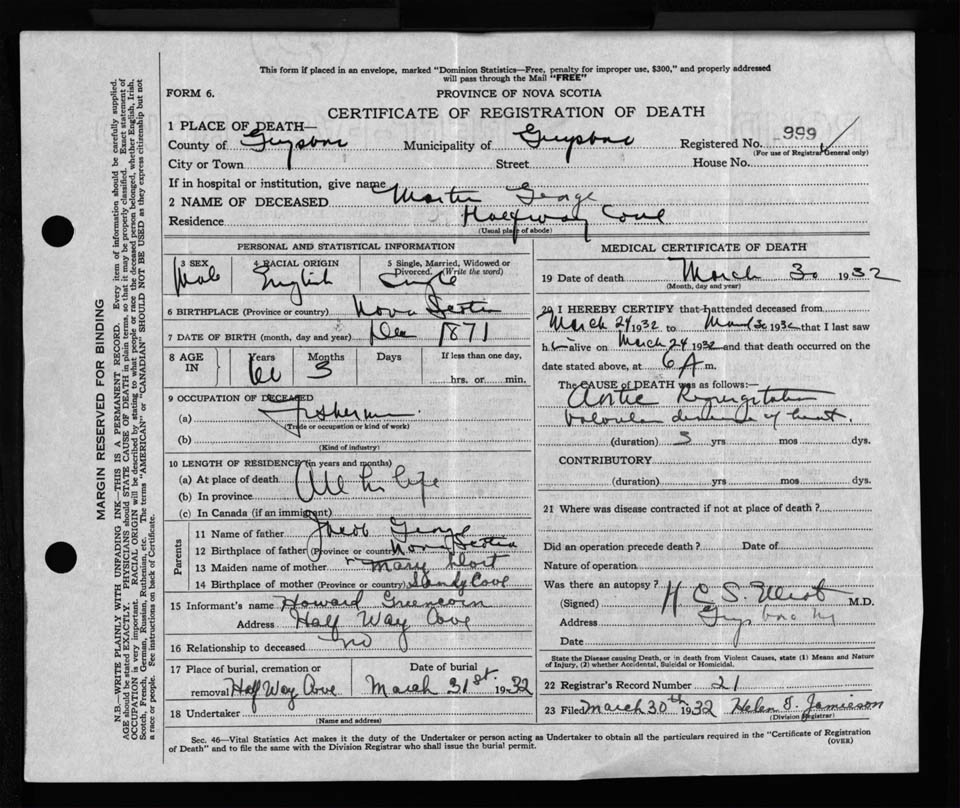 This form if placed in an envelope, marked "Dominion Statistics—Free, penalty for improper use, $300," and properly addressed
will pass through the Mail "FREE"
FORM 6.
PROVINCE OF NOVA SCOTIA
CERTIFICATE OF REGISTRATION OF DEATH
1 PLACE OF DEATH—
County of Guysboro Municipality of Guysboro Registered No. 999
(For use of Registrar General only)
City or Town Street House No.
If in hospital or institution, give name
2 NAME OF DECEASED Martin George
Residence Halfway Cove
(Usual place of abode)
PERSONAL AND STATISTICAL INFORMATION
3 SEX 4 RACIAL ORIGIN 5 Single, Married, Widowed or
Divorced. (Write the word)
Male English Single
6 BIRTHPLACE (Province or country) Nova Scotia
7 DATE OF BIRTH (month, day and year) Dec 1871
8 AGE IN Years Months Days If less than one day,
60 3 hrs. or min.
9 OCCUPATION OF DECEASED
(a) Fisherman
(Trade or occupation or kind of work)
(b)
(Kind of industry)
10 LENGTH OF RESIDENCE (in years and months)
(a) At place of death All his life
(b) In province
(c) In Canada (if an immigrant)
Parents
11 Name of father Jacob George
12 Birthplace of father (Province or country) Nova Scotia
13 Maiden name of mother Mary
14 Birthplace of mother (Province or country) Sandy Cove
15 Informant's name Howard Greencorn
Address Half Way Cove
16 Relationship to deceased no
17 Place of burial, cremation or Date of burial
removal Half Way Cove March 31st. 1932
18 Undertaker
(Name and address)
MEDICAL CERTIFICATE OF DEATH
19 Date of death March 30 1932
(Month, day and year)
20 I HEREBY CERTIFY that I attended deceased from
March 24 1932 to March 30 1932 that I last saw
h alive on March 24 1932 and that death occurred on the
date stated above, at 6 A m.
The CAUSE OF DEATH was as follows:—
Aortic Regurgitation
valvular disease of heart.
(duration) 3 yrs mos dys.
CONTRIBUTORY
(duration) yrs mos dys.
21 Where was disease contracted if not at place of death?
Did an operation precede death? Date of
Nature of operation
Was there an autopsy?
(Signed) H C S. Elliot M.D.
Address Guysboro NS
Date
State the Disease causing Death, or in death from Violent Causes, state (1) Means and Nature
of Injury, (2) whether Accidental, Suicidal or Homicidal.
22 Registrar's Record Number 21
23 Filed March 30th 1932 Helen S. Jamieson
(Division Registrar)
Sec. 46—Vital Statistics Act makes it the duty of the Undertaker or person acting as Undertaker to obtain all the particulars required in the "Certificate of Registration
of Death" and to file the same with the Division Registrar who shall issue the burial permit.
(OVER)
MARGIN RESERVED FOR BINDING
N.B.—WRITE PLAINLY WITH UNFADING INK—THIS IS A PERMANENT RECORD. Every item of information should be carefully supplied.
AGE should be stated EXACTLY. PHYSICIANS should STATE CAUSE OF DEATH in plain terms, so that it may be properly classified. Exact statement of
OCCUPATION is very important. RACIAL ORIGIN will be described by stating to what people or race the deceased person belonged, whether English, Irish,
Scotch, French, German, Russian, Ruthenian, etc. The terms "AMERICAN" or "CANADIAN" SHOULD NOT BE USED as they express citizenship but not
a race or people. See instructions on back of Certificate.